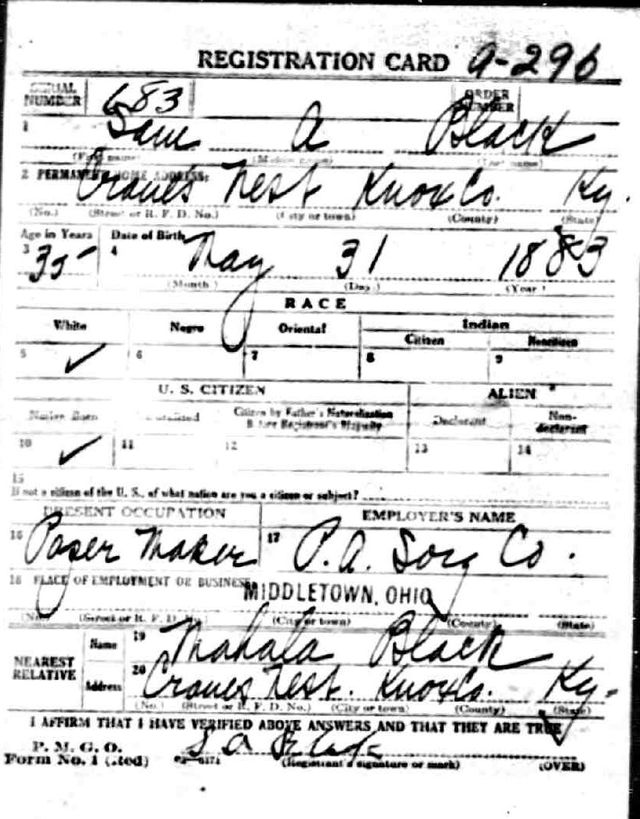 REGISTRATION CARD A-296
SERIAL NUMBER 683 ORDER NUMBER
1 Sam A Black
(First name) (Middle name) (Last name)
2 PERMANENT HOME ADDRESS:
Cranes Nest Knox Co. Ky.
(No.) (Street or R. F. D. No.) (City or town) (County) (State)
Age in Years Date of Birth
3 35 4 May 31 1883
(Month.) (Day.) (Year.)
RACE
White Negro Oriental Indian
Citizen Noncitizen
5 ✓ 6 7 8 9
U. S. CITIZEN ALIEN
Native Born Naturalized Citizen by Father's Naturalization Before Registrant's Majority Declarant Non-declarant
10 ✓ 11 12 13 14
15
If not a citizen of the U. S., of what nation are you a citizen or subject?
PRESENT OCCUPATION EMPLOYER'S NAME
16 Paper Maker 17 P. A. Sorg Co.
18 PLACE OF EMPLOYMENT OR BUSINESS:
MIDDLETOWN, OHIO
(No.) (Street or R. F. D. No.) (City or town) (County) (State)
NEAREST RELATIVE Name 19 Mahala Black
Address 20 Cranes Nest. Knox Co. Ky.
(No.) (Street or R. F. D. No.) (City or town) (County) (State)
I AFFIRM THAT I HAVE VERIFIED ABOVE ANSWERS AND THAT THEY ARE TRUE
P. M. G. O.
Form No. 1 (Red) S A Black
(Registrant's signature or mark) (OVER)